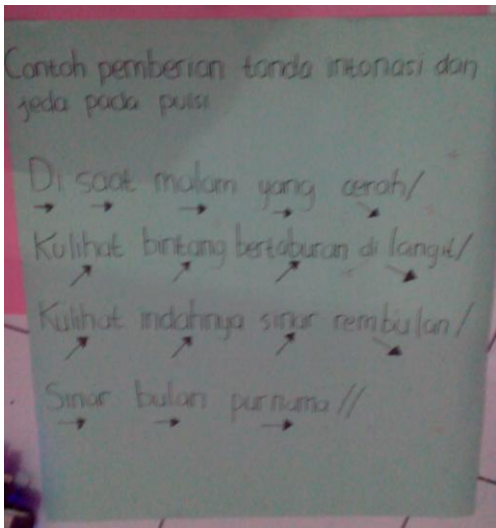 Contoh pemberian tanda intonasi dan
jeda pada puisi
Di saat malam yang cerah/
→ → → → ↘
Kulihat bintang bertaburan di langit/
↗ ↗ ↗ ↘
Kulihat indahnya sinar rembulan/
↗ ↗ ↗ ↘
Sinar bulan purnama//
→ → →